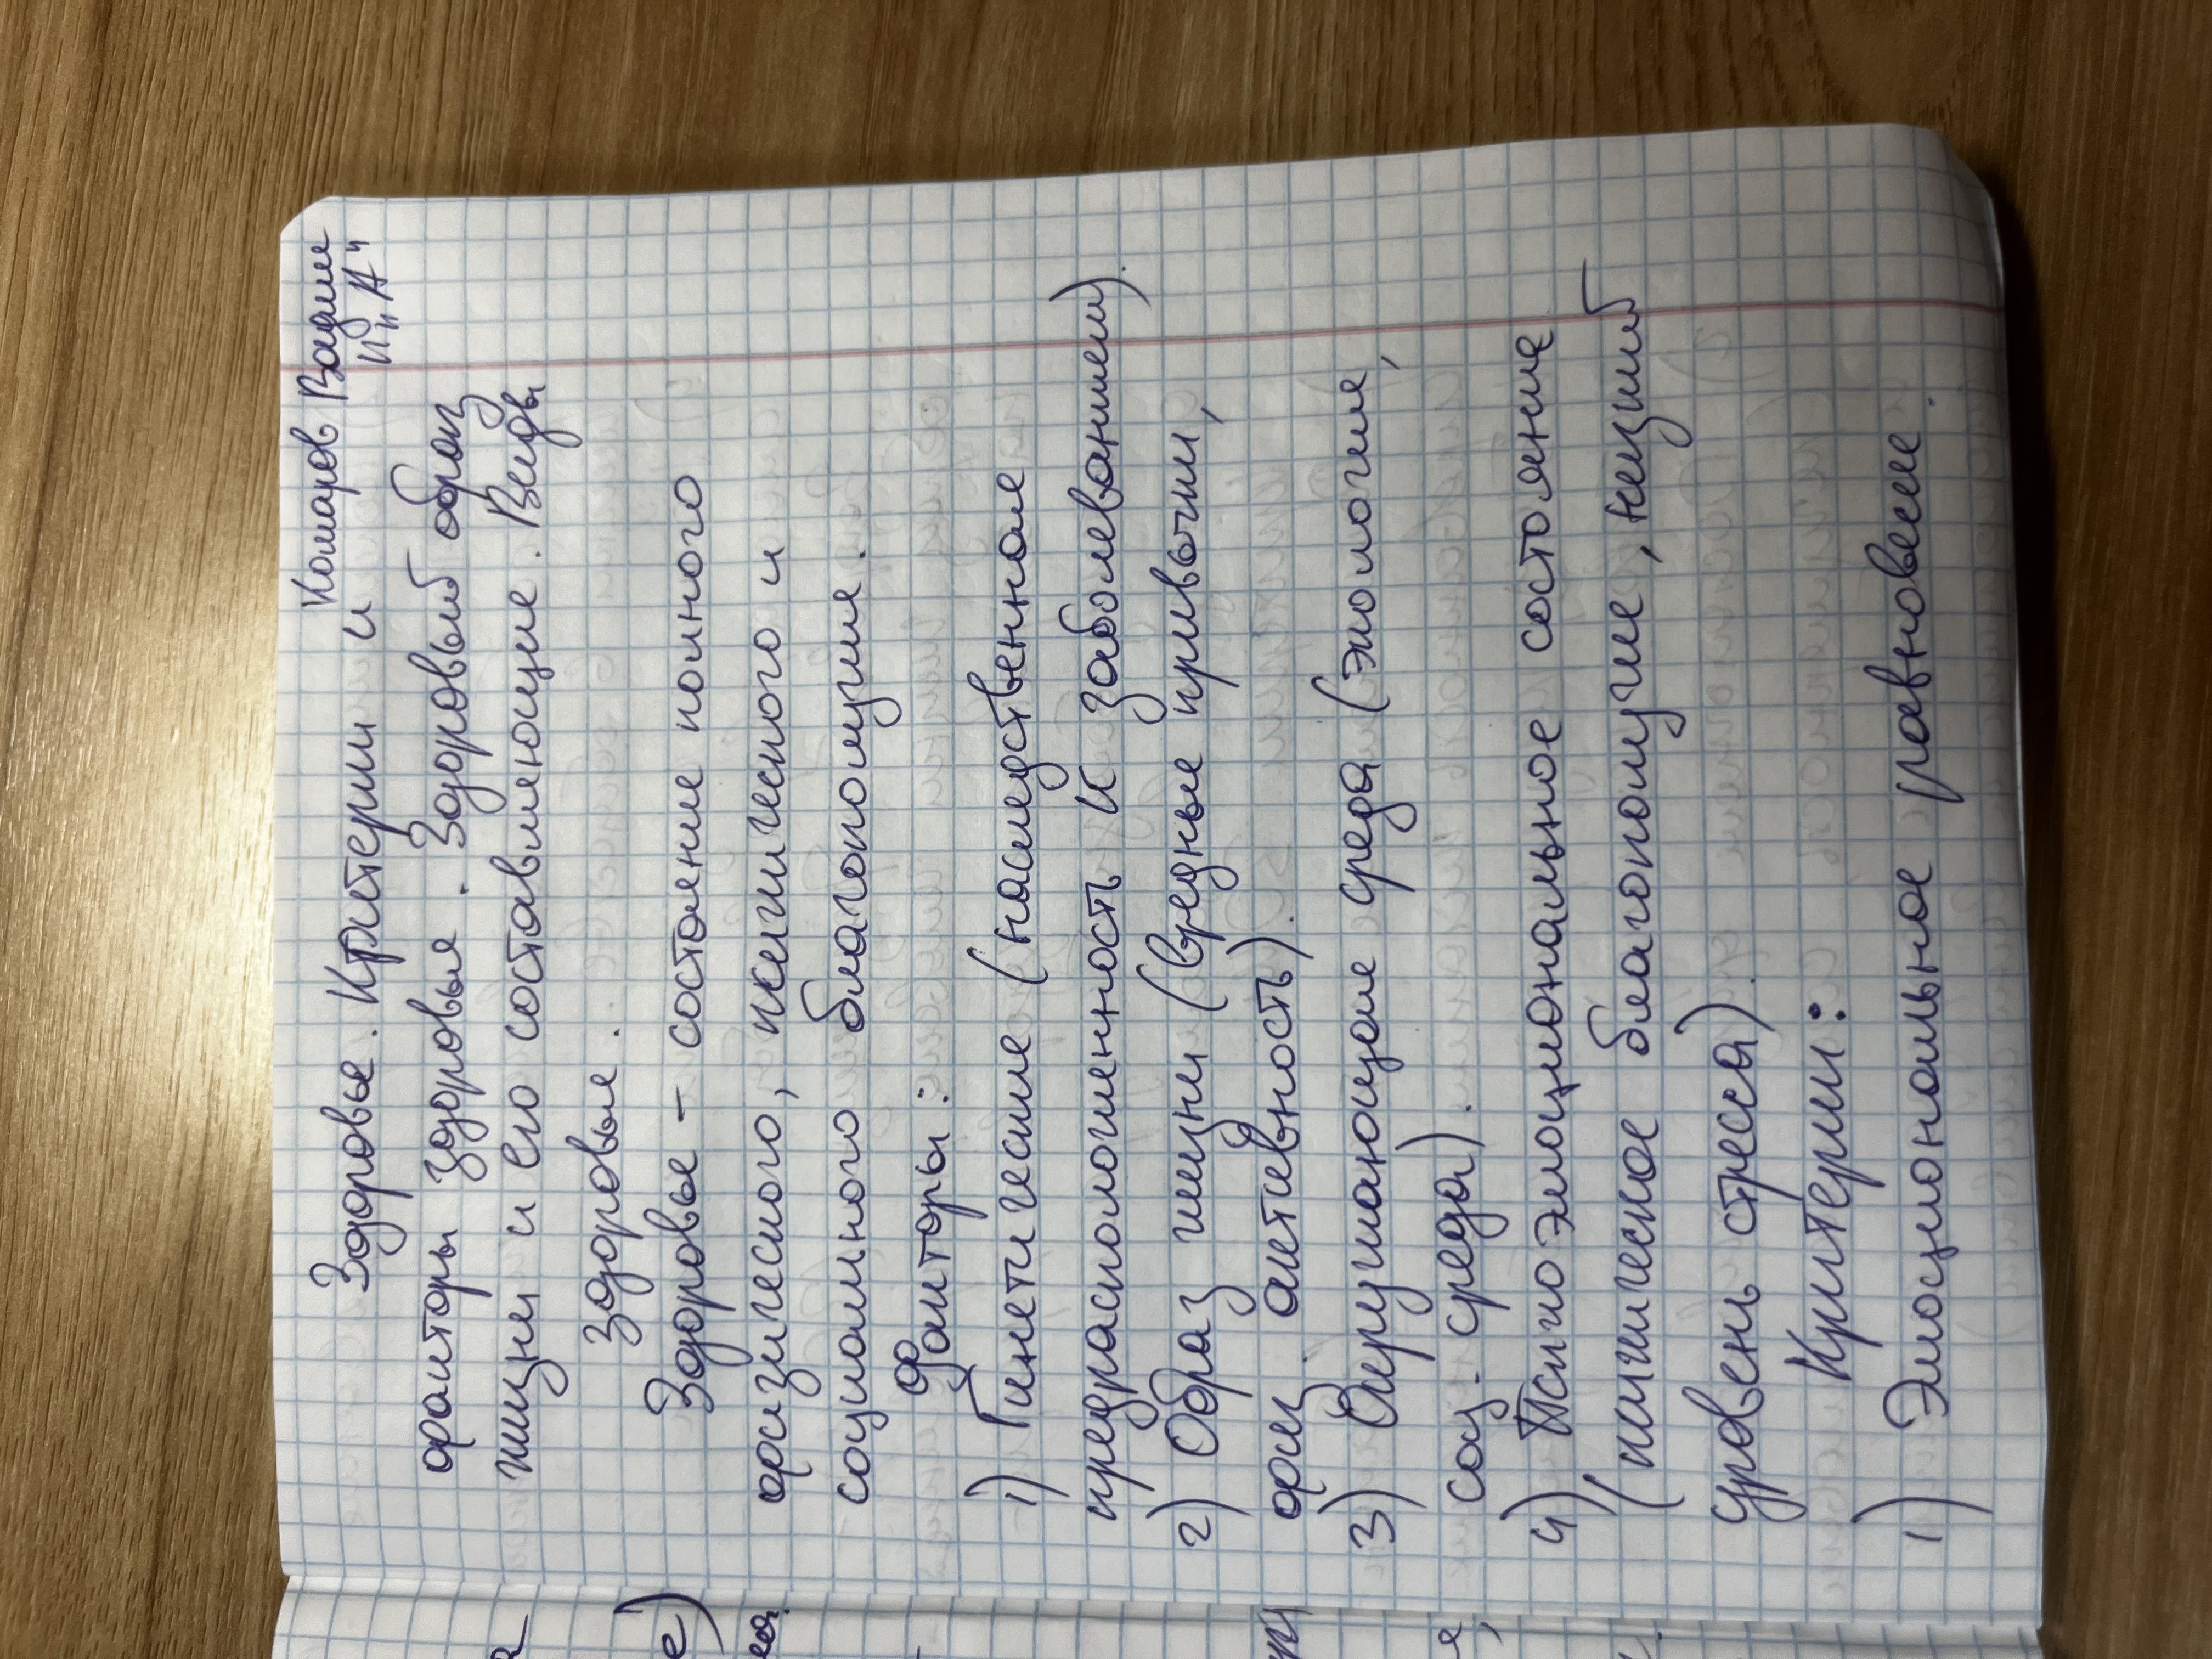 Комаров Вадим
11 "А"
Здоровье. Критерии и
факторы здоровья. Здоровый образ
жизни и его составляющие. Виды
здоровья.
Здоровье - состояние полного
физического, психического и
социального благополучия.
Факторы:
1) Гинетические (наследственная
предрасположенность к заболеваниям).
2) Образ жизни (вредные привычки,
физ. активность).
3) Окружающая среда (экология,
соц. среда).
4) Психоэмоциональное состояние
(психическое благополучие, низкий
уровень стресса).
Критерии:
1) Эмоциональное равновесие.